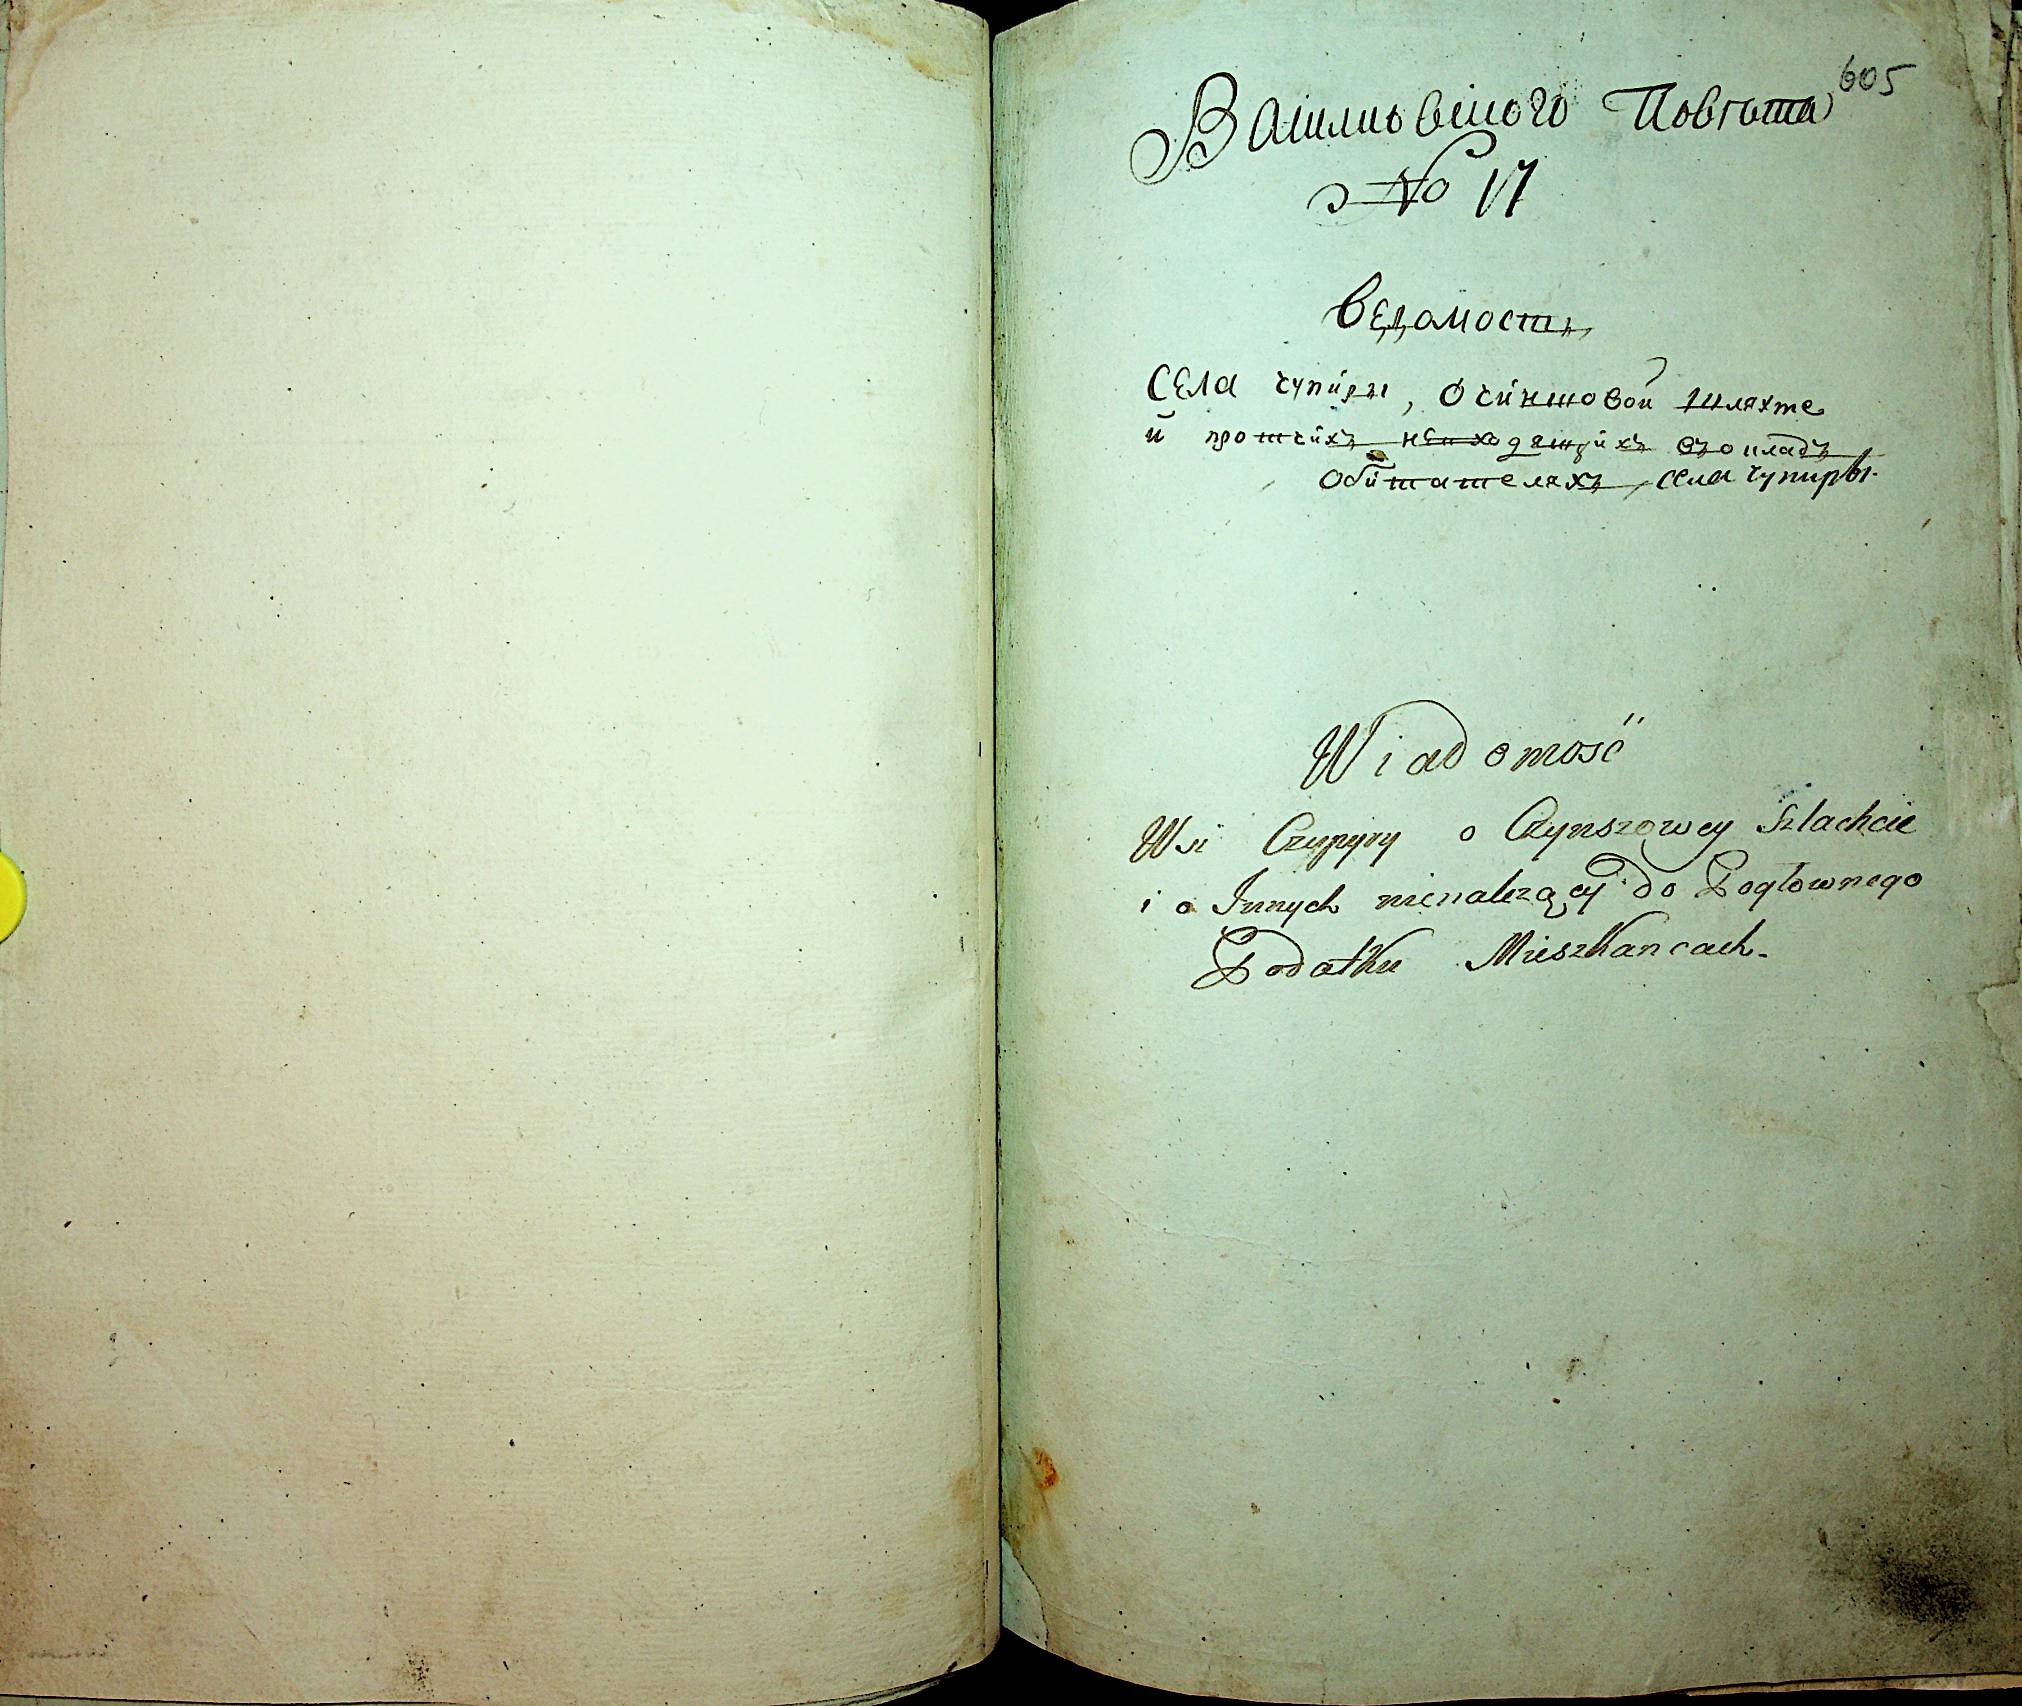 605
Васильковского Повѣта
No 17
Ведомость
Села чупиры, о чиншовой шляхте
й протчихъ невходящихъ въ окладъ
обитателяхъ, села чупиры.
Wiadomość
Wsi Czupyry o Czynszowey Szlachcie
i o Innych nienależący do Pogłownego
Podatku Mieszkancach.